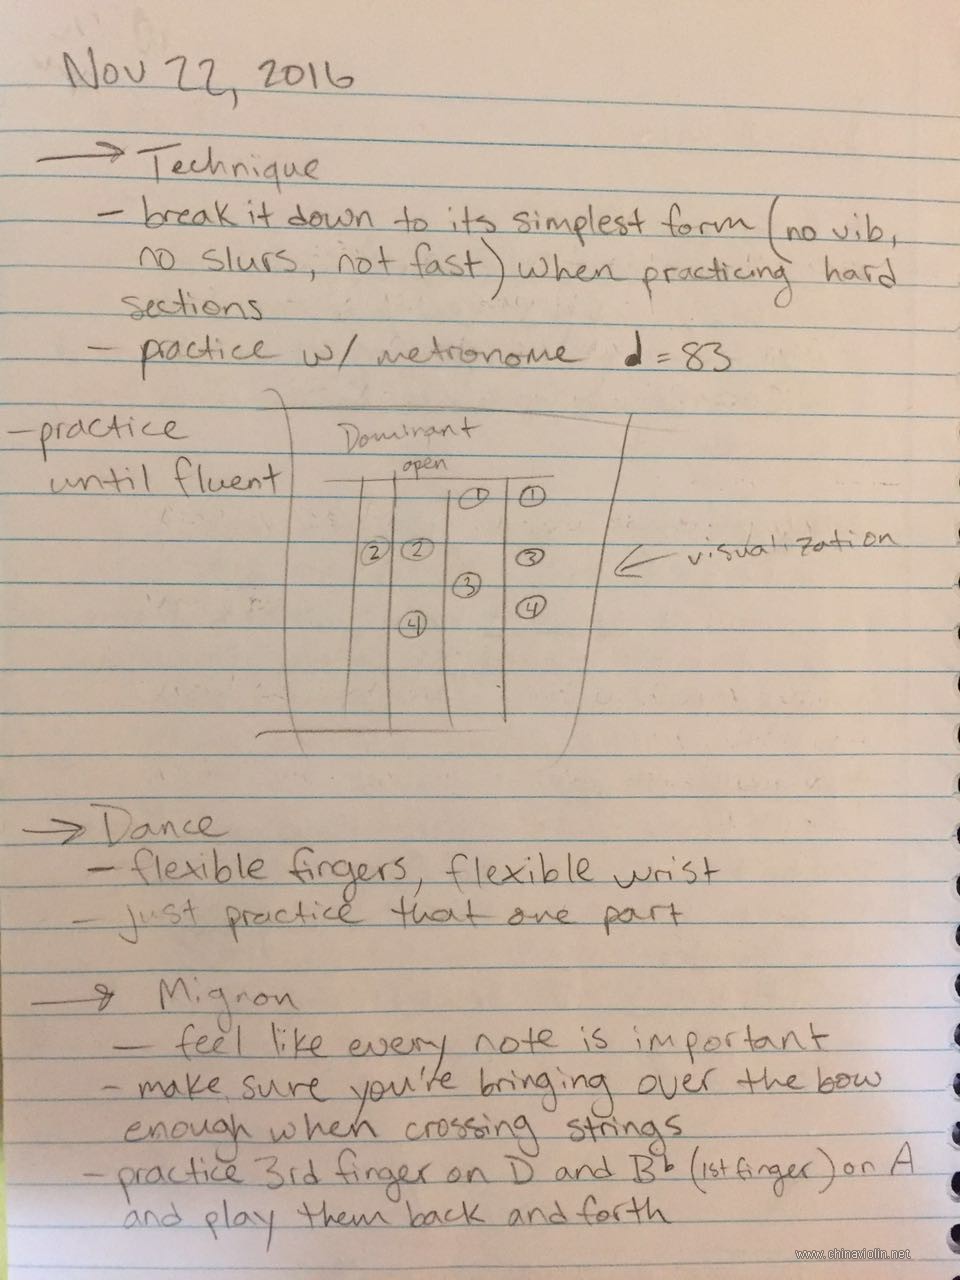 Nov 22, 2016
→ Technique
- break it down to its simplest form (no vib,
no slurs, not fast) when practicing hard
sections
- practice w/ metronome ♩=83
- practice
until fluent
Dominant
open
① ①
② ② ③
③
④ ④
← visualization
→ Dance
- flexible fingers, flexible wrist
- just practice that one part
→ Mignon
- feel like every note is important
- make sure you're bringing over the bow
enough when crossing strings
- practice 3rd finger on D and B♭ (1st finger) on A
and play them back and forth
www.chinaviolin.net